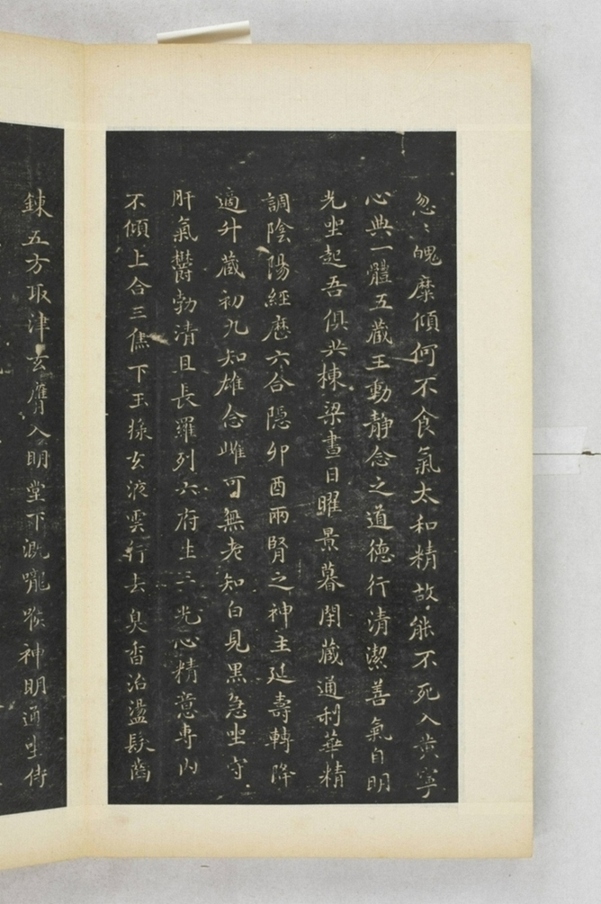 忽〻魄糜傾何不食氣太和精故能不死入黄寧
心典一體五藏王動靜念之道德行清潔善氣自明
光坐起吾俱共棟梁晝日曜景暮閉藏通利華精
調陰陽經歷六合隱卯酉兩腎之神主延壽轉降
適升藏初九知雄念雌可無老知白見黑急坐守
肝氣鬱勃清且長羅列六府生三光心精意專内
不傾上合三焦下玉漿玄液雲行去臭香治盪髮齒
鍊五方取津玄膺入明堂下溉嚨喉神明通坐侍